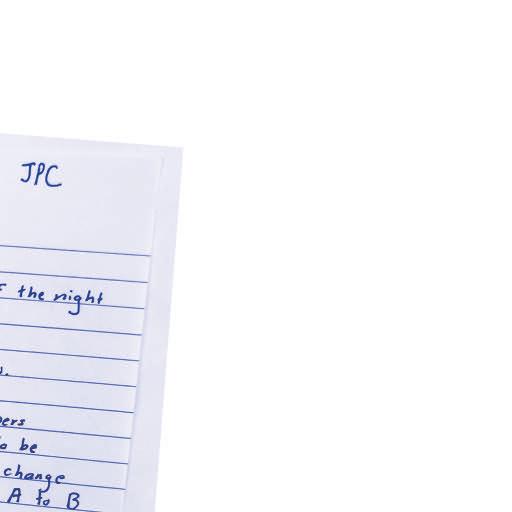 JPC
the night
be
change
A to B